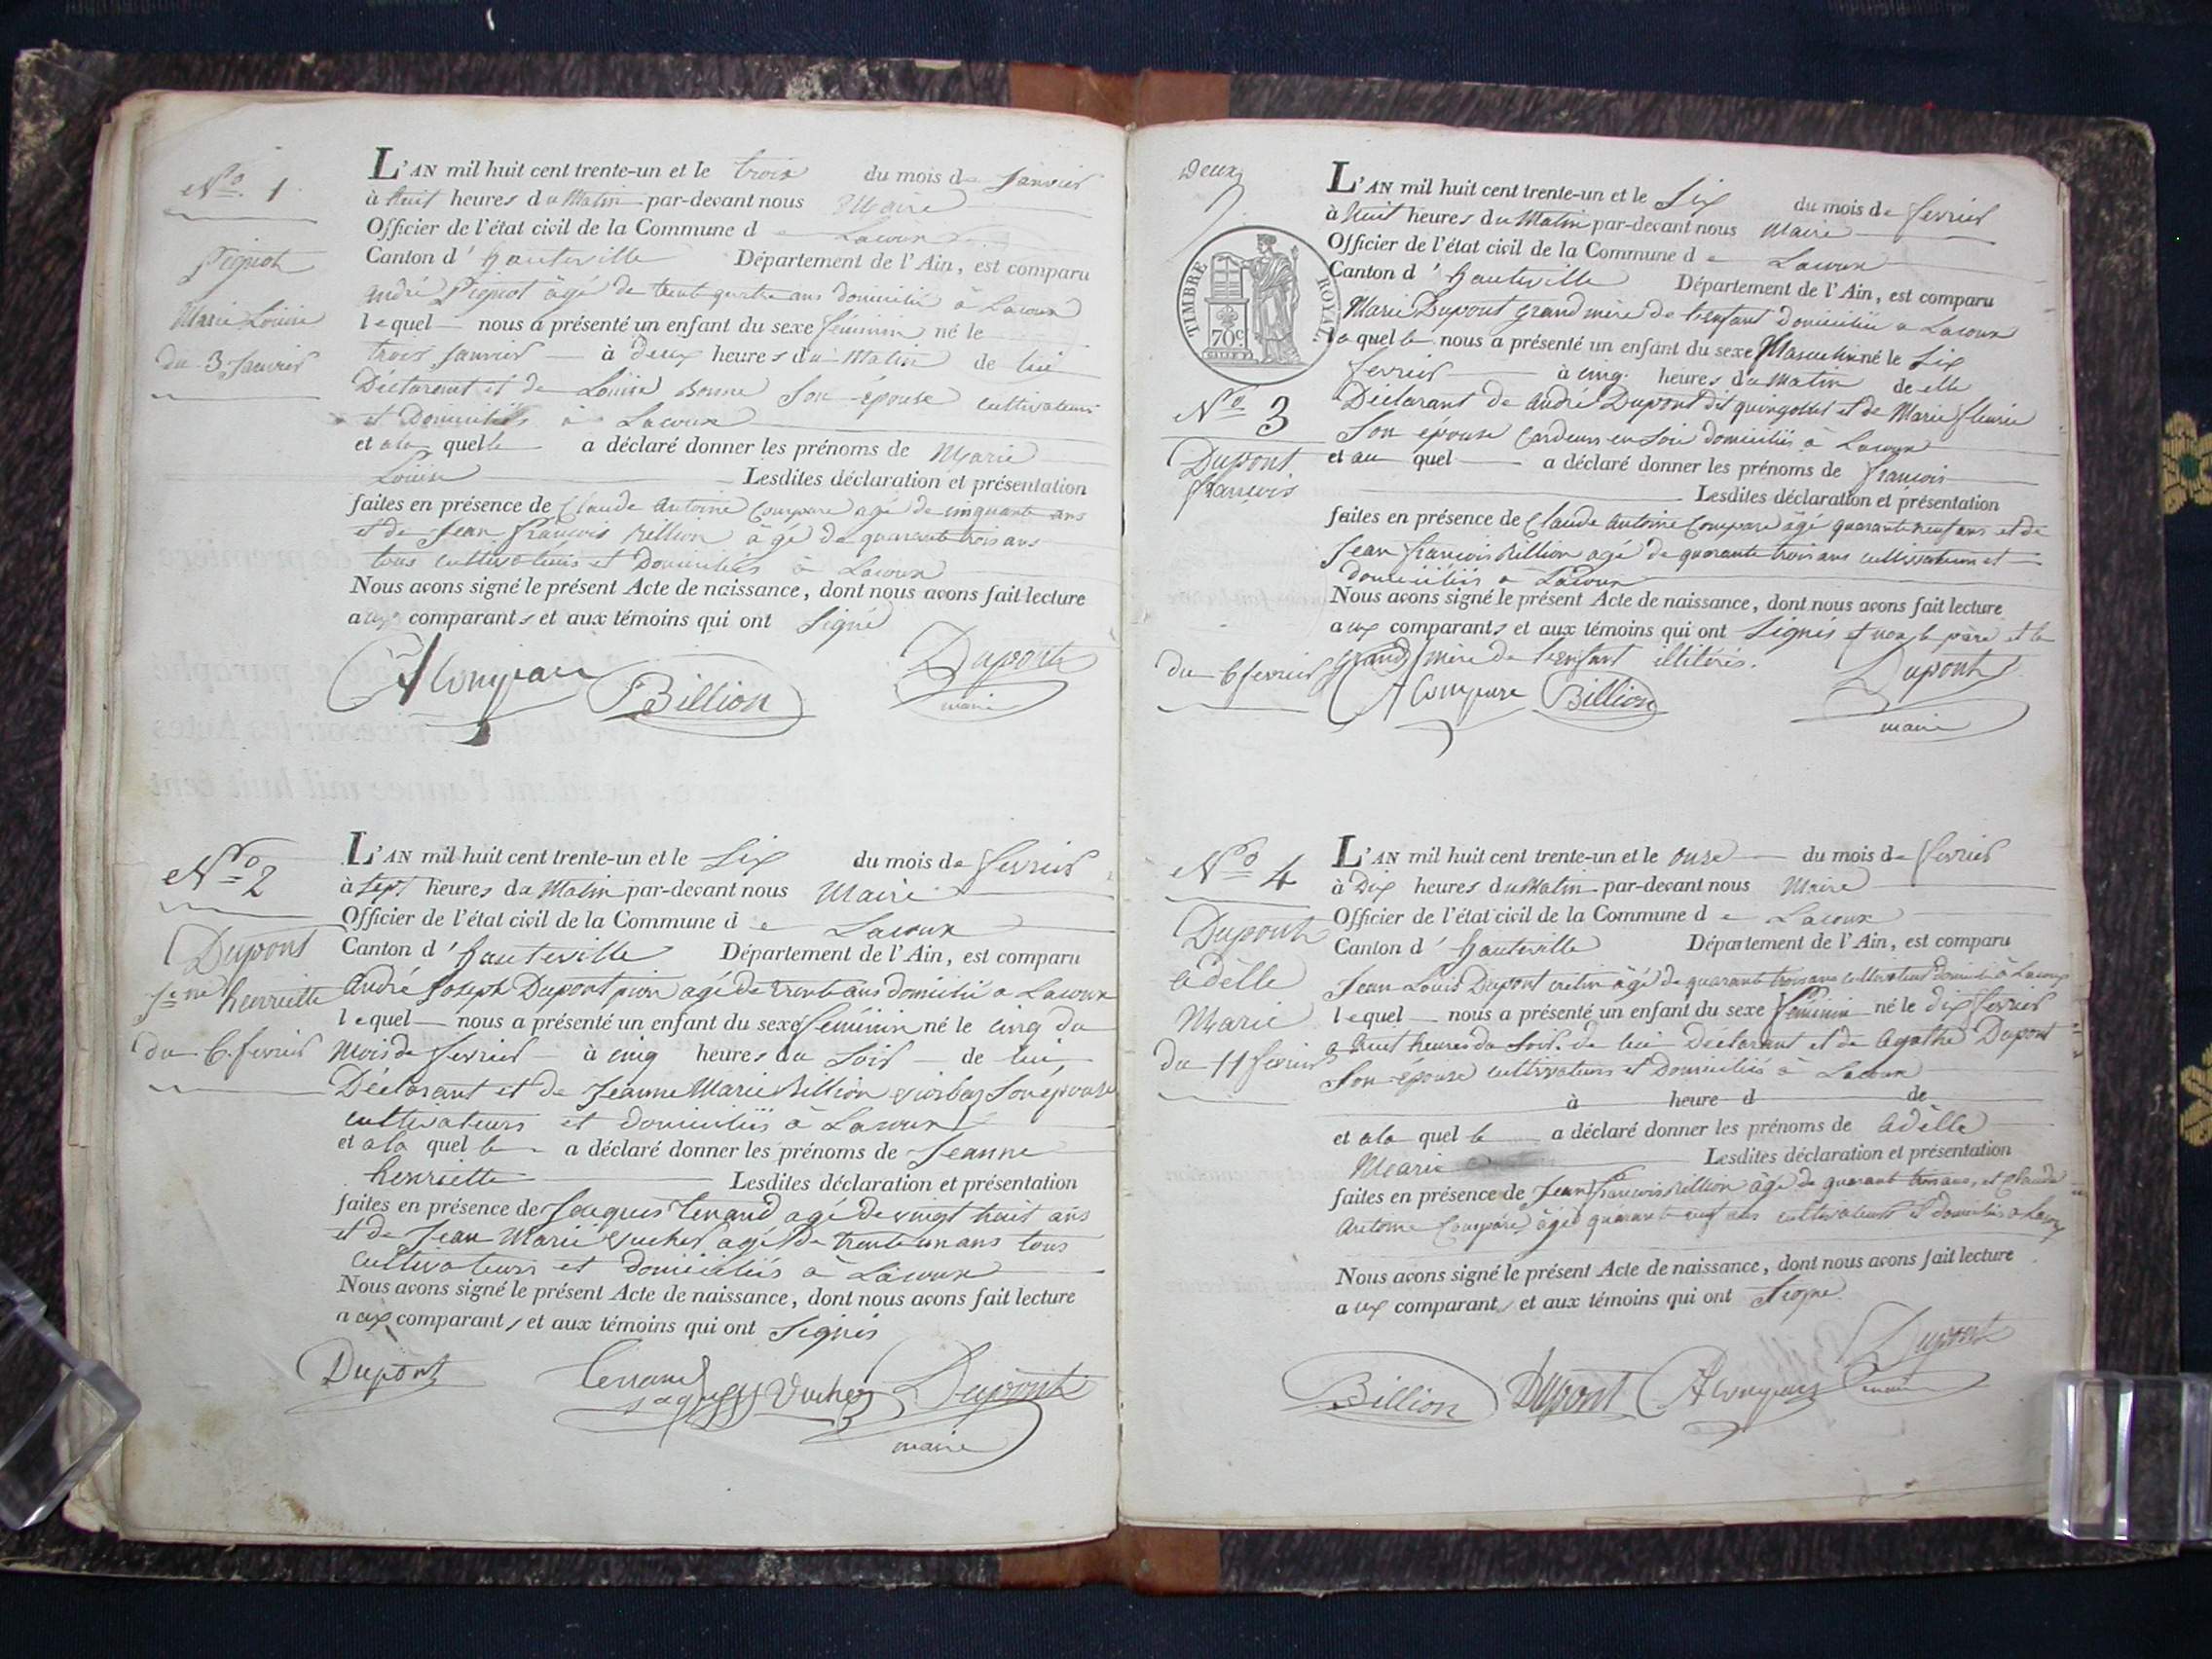 No. 1
Pignot
Marie Louise
du 3 Janvier
L'AN mil huit cent trente-un et le trois du mois de Janvier
à huit heures du Matin par-devant nous Maire
Officier de l'état civil de la Commune de Lacoux
Canton d'hauteville Département de l'Ain, est comparu
andré Pignot âgé de trente quatre ans domicilié à Lacoux
lequel nous a présenté un enfant du sexe féminin né le
trois Janvier à deux heures du Matin de lui
Déclarant et de Louise Bonne Son épouse cultivateurs
et Domiciliés à Lacoux
et a la quelle a déclaré donner les prénoms de Marie
Louise Lesdites déclaration et présentation
faites en présence de Claude antoine Compare agé de cinquante ans
et de Jean françois Billion âgé de quarante trois ans
tous cultivateurs et Domiciliés à Lacoux
Nous avons signé le présent Acte de naissance, dont nous avons fait lecture
aux comparants et aux témoins qui ont Signé
Billion Dupont
maire
No. 2
Dupont
Jne henriette
du 6 fevrier
L'AN mil huit cent trente-un et le Six du mois de fevrier
à sept heures du Matin par-devant nous Maire
Officier de l'état civil de la Commune de Lacoux
Canton d'hauteville Département de l'Ain, est comparu
André Joseph Dupont pion agé de trente ans domicilié a Lacoux
lequel nous a présenté un enfant du sexe feminin né le cinq du
Mois de fevrier à cinq heures du Soir de lui
Déclarant et de Jeanne Marie Billion Son epouse
cultivateurs et domiciliés à Lacoux
et a la quelle a déclaré donner les prénoms de Jeanne
henriette Lesdites déclaration et présentation
faites en présence de Jacques Tenand agé de vingt huit ans
et de Jean Marie vucher agé de trente un ans tous
cultivateurs et domiciliés à Lacoux
Nous avons signé le présent Acte de naissance, dont nous avons fait lecture
aux comparants et aux témoins qui ont Signés
Dupont Tenand Jaques Vucher Dupont
maire
Deux
TIMBRE ROYAL
70c
No. 3
Dupont
françois
du 6 fevrier
L'AN mil huit cent trente-un et le Six du mois de fevrier
à huit heures du Matin par-devant nous Maire
Officier de l'état civil de la Commune de Lacoux
Canton d'hauteville Département de l'Ain, est comparu
Marie Dupont grand mère de l'enfant domiciliée a Lacoux
la quelle nous a présenté un enfant du sexe Masculin né le Six
fevrier à cinq heures du Matin de elle
Déclarant de andré Dupont dit et de Marie fleurie
Son epouse Cardeurs en Soie domiciliés à Lacoux
et au quel a déclaré donner les prénoms de françois
Lesdites déclaration et présentation
faites en présence de Claude antoine Compare âgé quarante neuf ans et de
Jean françois Billion agé de quarante trois ans cultivateurs et
domiciliés à Lacoux
Nous avons signé le présent Acte de naissance, dont nous avons fait lecture
aux comparants et aux témoins qui ont Signés et non le père et la
grand mère de l'enfant illiterés.
CA Compare Billion Dupont
maire
No. 4
Dupont
adèlle
Marie
du 11 fevrier
L'AN mil huit cent trente-un et le onze du mois de fevrier
à Dix heures du Matin par-devant nous Maire
Officier de l'état civil de la Commune de Lacoux
Canton d'hauteville Département de l'Ain, est comparu
Jean Louis Dupont âgé de quarante trois ans cultivateur domicilié à Lacoux
lequel nous a présenté un enfant du sexe féminin né le dix fevrier
a huit heures du Soir. de lui Déclarant et de Agathe Dupont
Son épouse cultivateurs et Domiciliés à Lacoux
à heure d de
et a la quelle a déclaré donner les prénoms de adèlle
Marie Lesdites déclaration et présentation
faites en présence de Jean françois Billion âgé de quarante trois ans, et Claude
antoine Compare âgé quarante neuf ans cultivateurs et domiciliés a Lacoux
Nous avons signé le présent Acte de naissance, dont nous avons fait lecture
aux comparants et aux témoins qui ont Signé
Billion Dupont CA Compare Dupont
maire